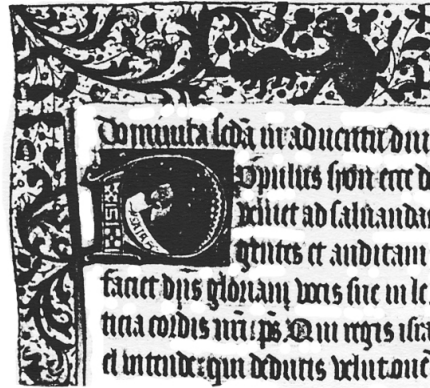 Dominica scda in aduentu dni
Populus syon ecce d
veniet ad saluandas
gentes et auditam
faciet dns gloriam vocis sue in le
ticia cordis nri ps Qui regis isra
el intende: qui deducis velut oue